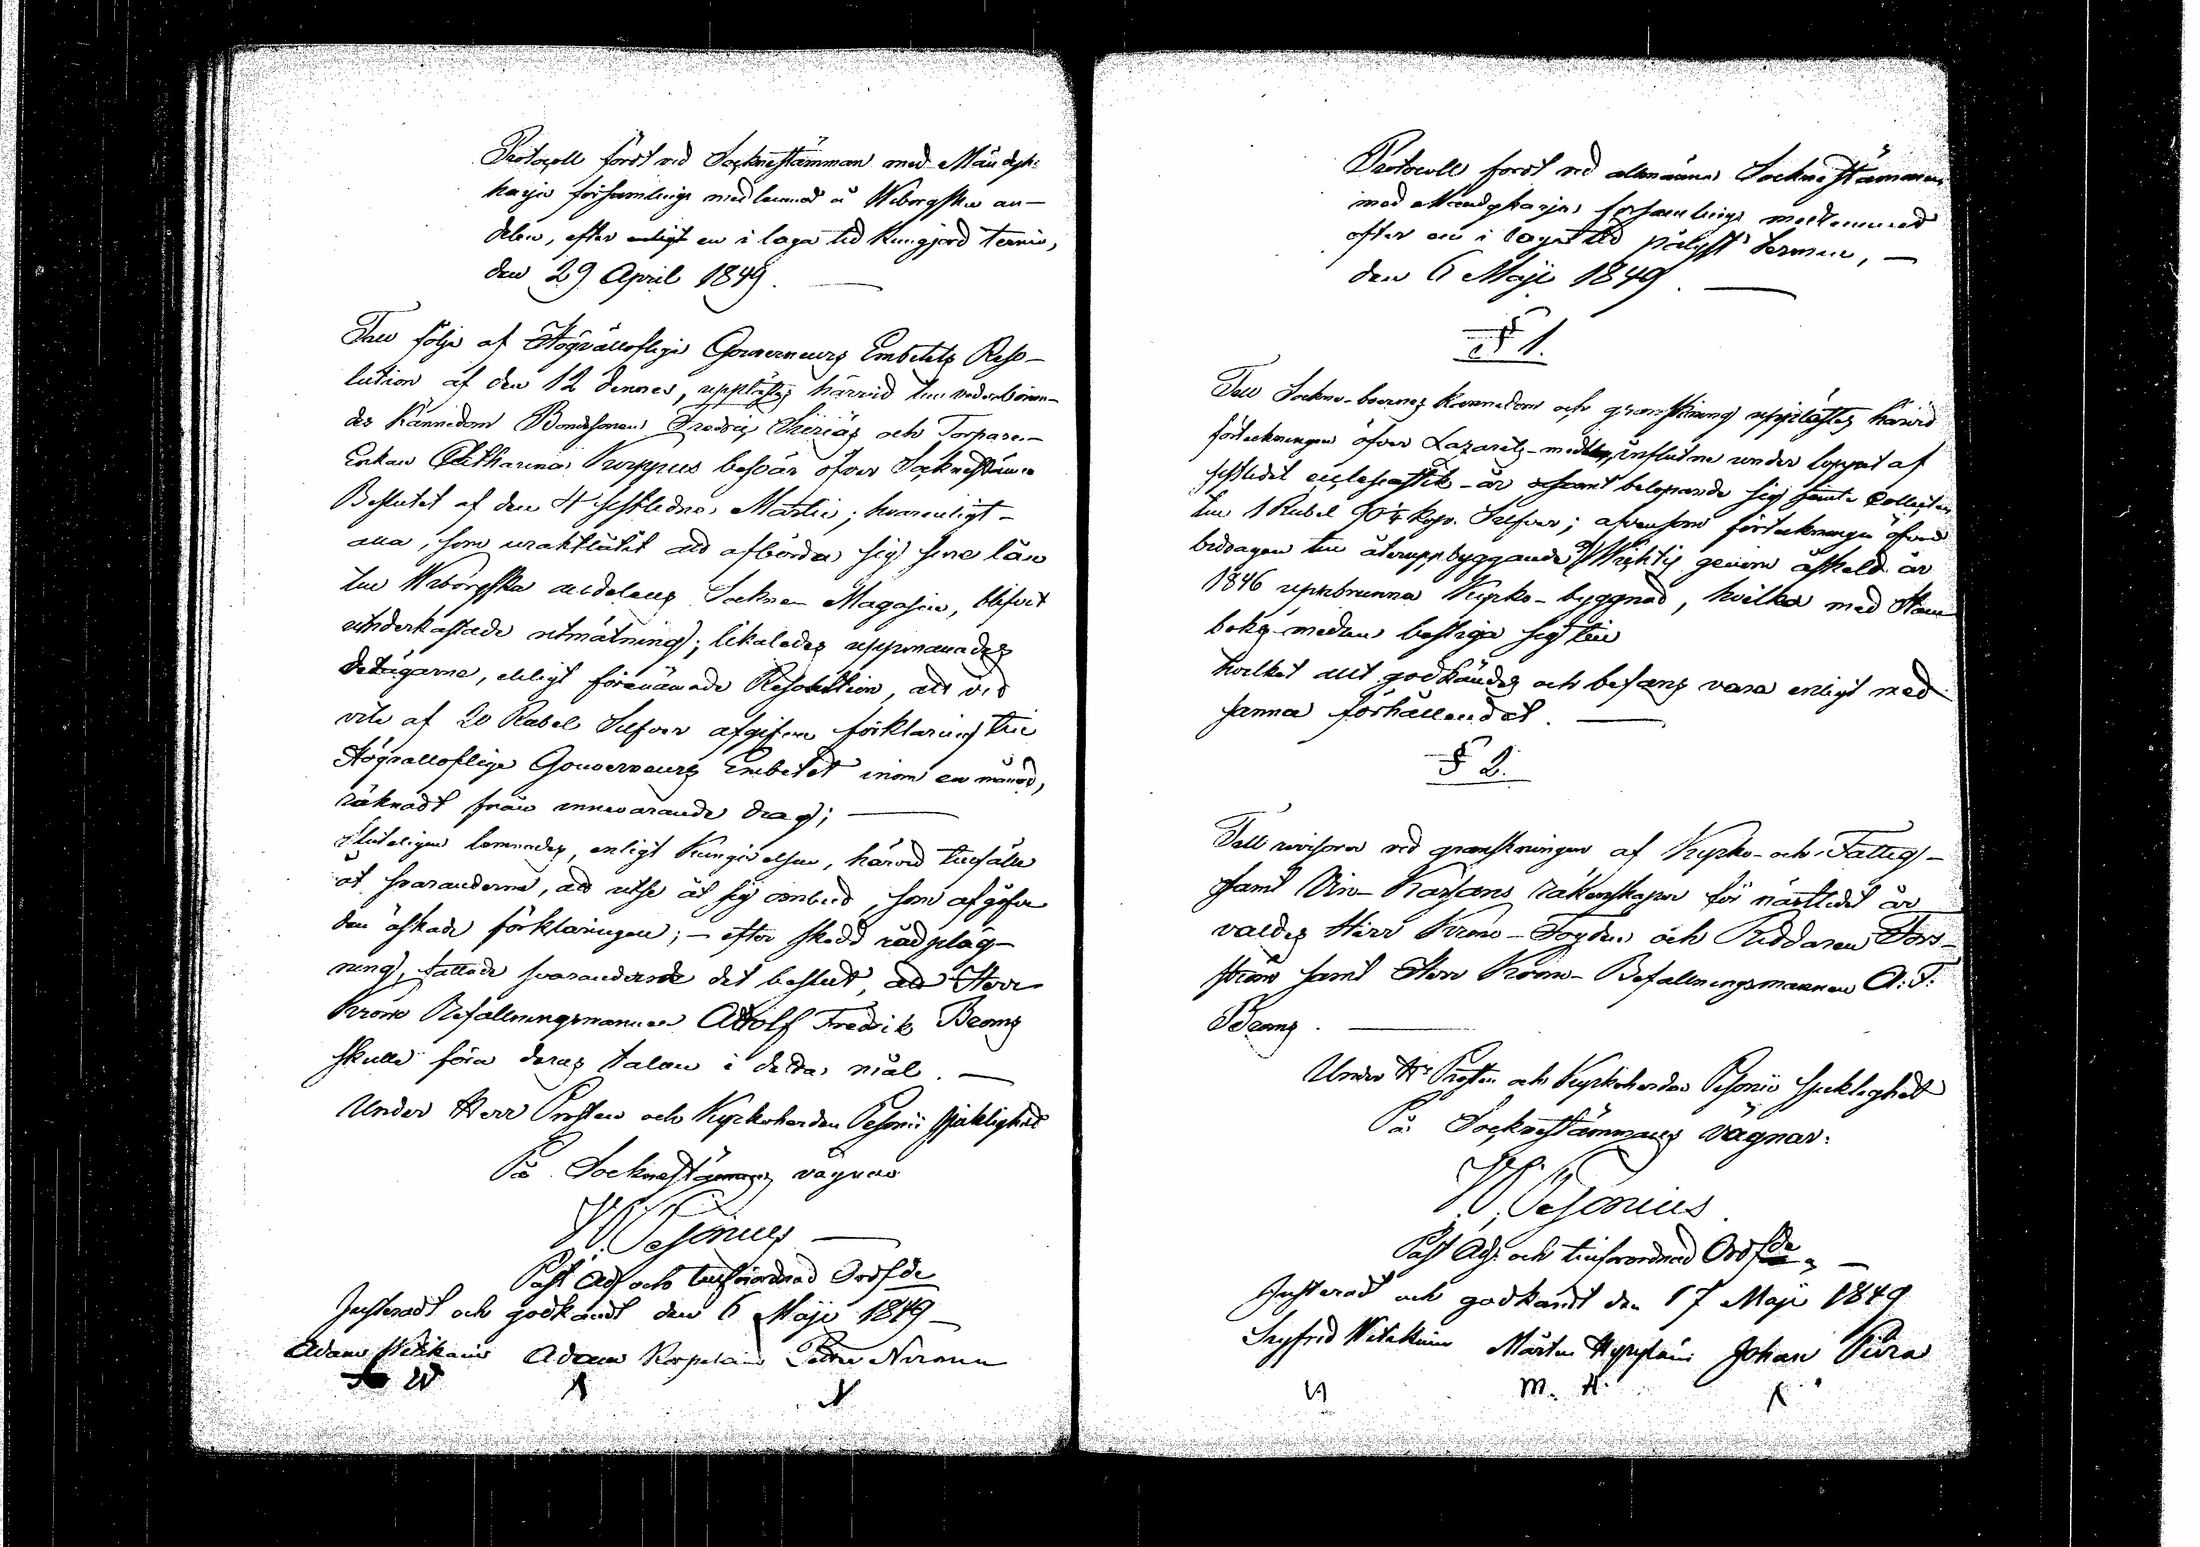 Protocoll fördt vid Sockne stämman med Mändyk-
harju församlings medlemmar å Wiborgska an-
delen, efter enligt en i laga tid kungjord termin,
den 29 April 1849. —
Till följe af Högvällofliga Gouverneurs Embetets Reso-
lution af den 12 dennes, upplästes härvid till vederböran-
des kännedom Bondesonen Fredric och Torpare-
Enkan Catharina Korppus besvär öfver Sockne stämmo
Beslutet af den 4 sistledne Martii; hvarenligt
alla, som uraktlåtit att afbörda sig sine lån
till Wiborgska andelens Sockne Magasin, blifvit
underkastade utmätning; likaledes uppmanades
delägarne, enligt förenämnde Resolution, att vid
vite af 20 Rubel Silfver afgifva förklaring till
Högvällofliga Gouverneurs Embetet inom en månad,
räknadt från innevarande dag; —
Sluteligen lemnades, enligt Kungörelsen, härvid tillfälle
åt svaranderne, att utse åt sig ombud, som afgåfve
den äskade förklaringen; — efter skedd rådpläg-
ning, fattade svaranderne det beslut, att Herr
Krono Befallningsmannen Adolf Fredrik Brang
skulle föra deras talan i detta mål. —
Under Herr Prosten och Kyrkoherden Pesonii sjuklighet
På Socknestämmans vägnar
W. Pesonius —
Past. Adj. och tillförordnad Ordfde
Justeradt och godkändt den 6 Maji 1849 —
Adam Witikain Adam Korpelain Petter Nironen
W
Protocoll fördt vid allmänna Sockne stämman
med Mändyharju församlings medlemmar
efter en i laga tid pålyst termin, —
den 6 Maji 1849. —
§ 1.
Till Sockne-boernes kännedom och granskning upplästes härvid
förteckningen öfver Lazaretts-medlen, influtne under loppet af
sistledet ecclesiastik-år och belöpande sig jemte Collecten
till 1 Rubel 90¼ kop. Silfver; äfvensom förteckningen öfver
bidragen till återuppbyggande af Wichtis genom åskeld år
1846 uppbrunna Kyrko-byggnad, hvilka med Stam
boks-medlen bestiga sig till
hvilket allt godkändes och befans vara enligt med
sanna förhållandet. —
§ 2.
Till revisorer vid granskningen af Kyrko- och Fattig-
samt Vin-Kassans räkenskaper för nästledet år
valdes Herr Krono-Fogden och Riddaren Fors-
ström samt Herr Krono-Befallningsmannen A. F.
Brang. —
Under Hr Prosten och Kyrkoherden Pesonii sjuklighet
På Socknestämmans vägnar:
W. Pesonius.
Past. Adj. och tillförordnad Ordfde —
Justerat och godkändt den 17 Maji 1849
Sigfrid Witikain Mårten Hyyryläin Johan Piira
M. H.